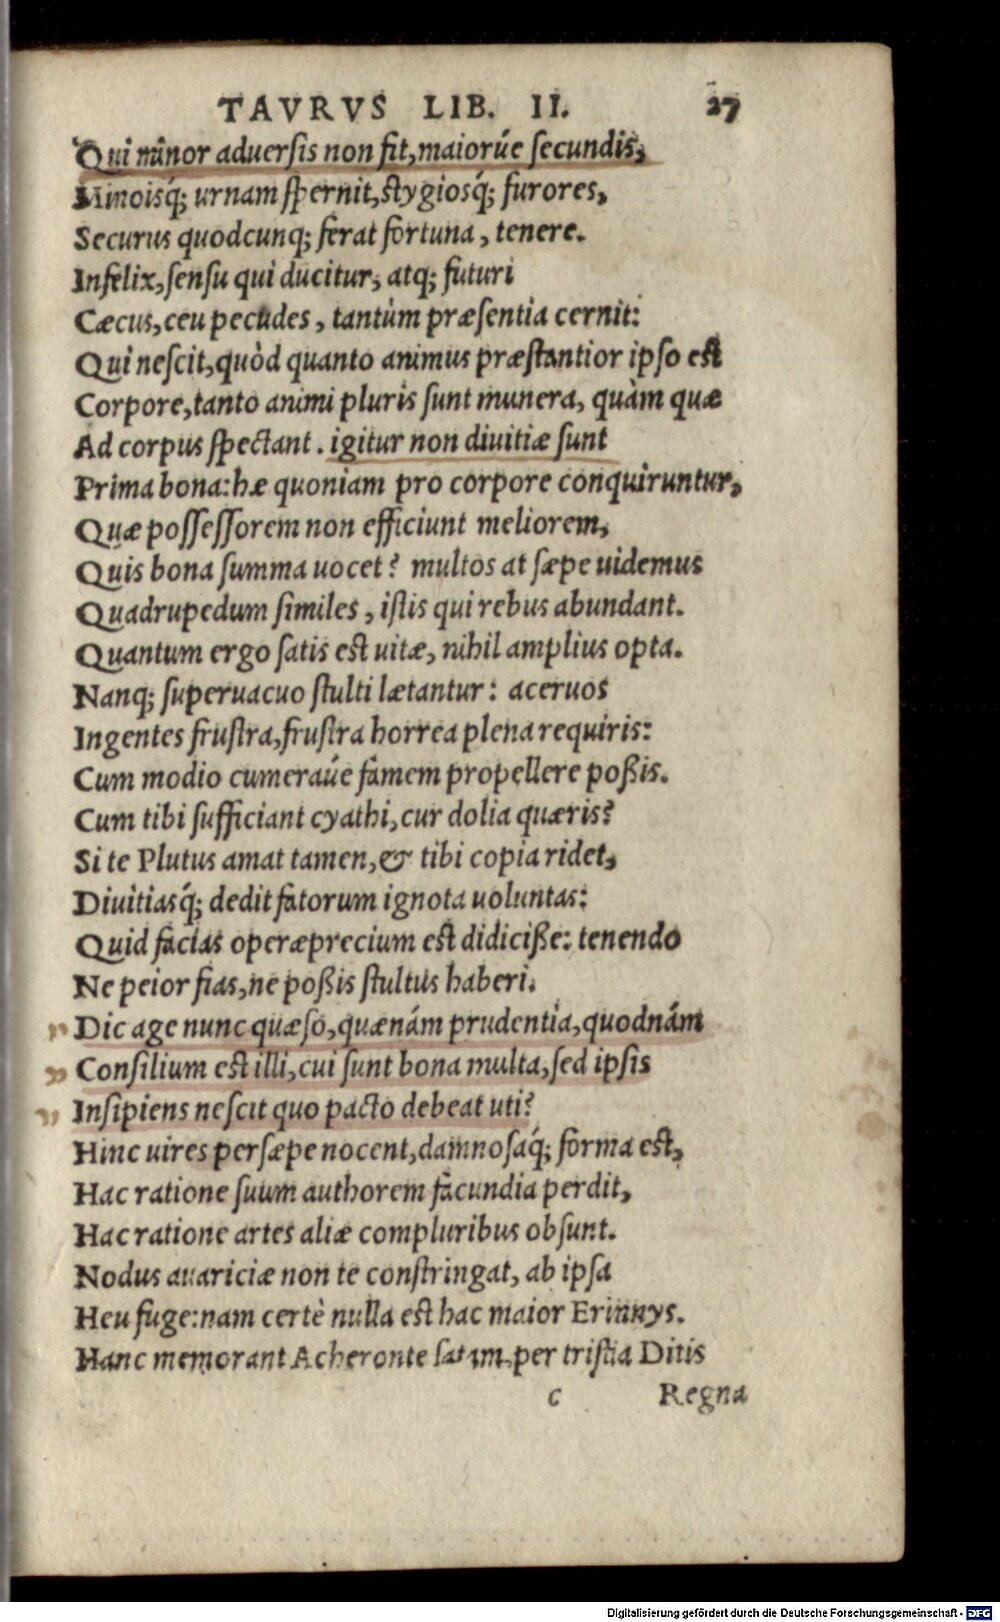 TAVRVS LIB. II. 27
Qui minor aduersis non fit, maiorúe secundis,
Minoisq́; urnam spernit, stygiosq́; furores,
Securus quodcunq; ferat fortuna, tenere.
Infelix, sensu qui ducitur, atq; futuri
Cæcus, ceu pecudes, tantùm præsentia cernit:
Qui nescit, quòd quanto animus præstantior ipso est
Corpore, tanto animi pluris sunt munera, quàm quæ
Ad corpus spectant. igitur non diuitiæ sunt
Prima bona: hæ quoniam pro corpore conquiruntur,
Quæ possessorem non efficiunt meliorem,
Quis bona summa uocet? multos at sæpe uidemus
Quadrupedum similes, istis qui rebus abundant.
Quantum ergo satis est uitæ, nihil amplius opta.
Nanq; superuacuo stulti lætantur: aceruos
Ingentes frustra, frustra horrea plena requiris:
Cum modio cumeraúe famem propellere poßis.
Cum tibi sufficiant cyathi, cur dolia quæris?
Si te Plutus amat tamen, & tibi copia ridet,
Diuitiasq́; dedit fatorum ignota uoluntas:
Quid facias operæprecium est didiciße: tenendo
Ne peior fias, ne poßis stultus haberi.
" Dic age nunc quæso, quænám prudentia, quodnám
" Consilium est illi, cui sunt bona multa, sed ipsis
" Insipiens nescit quo pacto debeat uti?
Hinc uires persæpe nocent, damnosaq́; forma est,
Hac ratione suum authorem facundia perdit,
Hac ratione artes aliæ compluribus obsunt.
Nodus auariciæ non te constringat, ab ipsa
Heu fuge: nam certè nulla est hac maior Erinnys.
Hanc memorant Acheronte satam, per tristia Ditis
c Regna
Digitalisierung gefördert durch die Deutsche Forschungsgemeinschaft - DFG